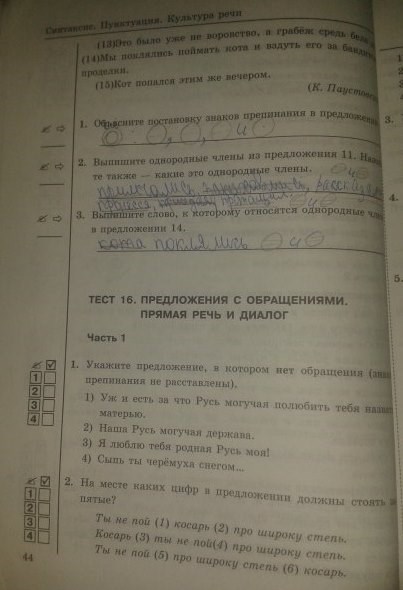 Синтаксис. Пунктуация. Культура речи
(13)Это было уже не воровство, а грабёж средь бела
(14)Мы поклялись поймать кота и вздуть его за
проделки.
(15)Кот попался этим же вечером.
(К. Паустов
1. Объясните постановку знаков препинания в предложен
2. Выпишите однородные члены из предложения 11.
те также — какие это однородные члены.
3. Выпишите слово, к которому относятся однородные
в предложении 14.
кота поклялись
ТЕСТ 16. ПРЕДЛОЖЕНИЯ С ОБРАЩЕНИЯМИ.
ПРЯМАЯ РЕЧЬ И ДИАЛОГ
Часть 1
1. Укажите предложение, в котором нет обращения
препинания не расставлены).
1) Уж и есть за что Русь могучая полюбить тебя
матерью.
2) Наша Русь могучая держава.
3) Я люблю тебя родная Русь моя!
4) Сыпь ты черёмуха снегом...
1
2
3
4
2. На месте каких цифр в предложении должны стоять
пятые?
Ты не пой (1) косарь (2) про широку степь.
Косарь (3) ты не пой(4) про широку степь.
Ты не пой (5) про широку степь (6) косарь.
1
2
3
4
44
3.
4.
5.